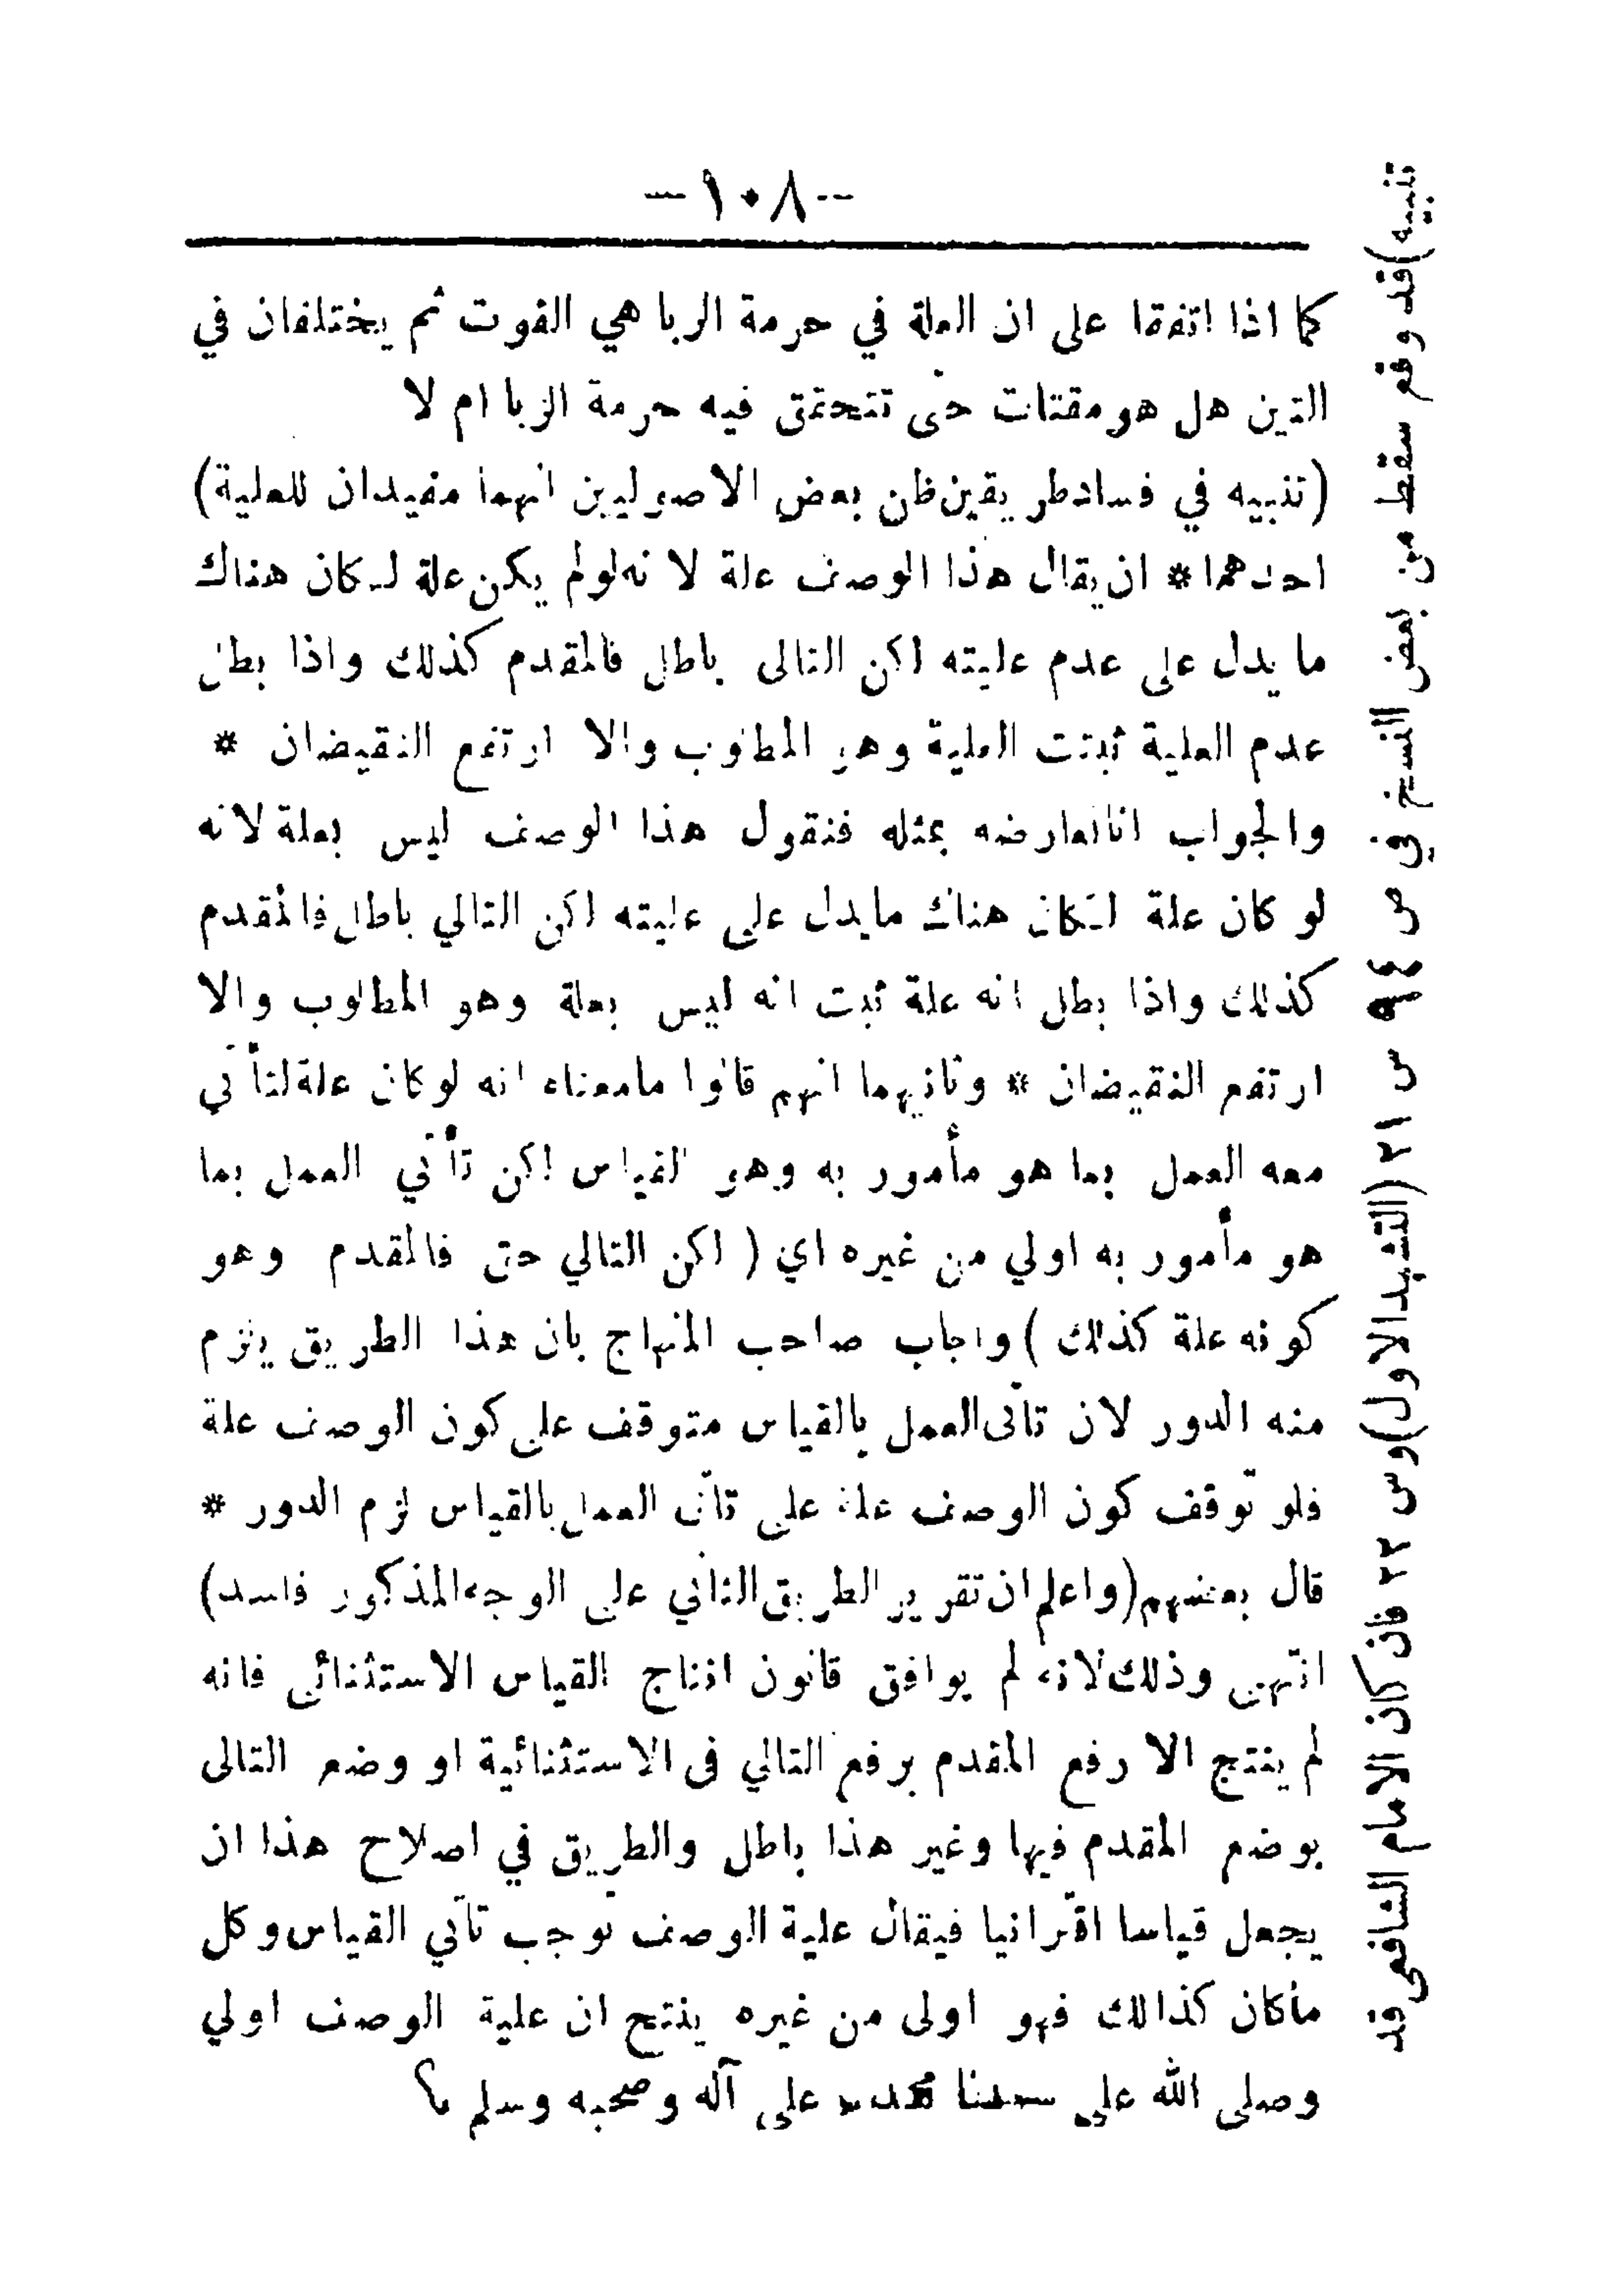 — ١٠٨ —
كما اذا اتفقا على ان العلة في حرمة الربا هي القوت ثم يختلفان في
التين هل هو مقتات حتى تتحقق فيه حرمة الربا ام لا
(تنبيه في فساد طريقين ظن بعض الاصوليين انهما مفيدان للعلية)
احدهما * ان يقال هذا الوصف علة لانه لو لم يكن علة لكان هناك
ما يدل على عدم عليته لكن التالى باطل فالمقدم كذلك واذا بطل
عدم العلية ثبتت العلية وهو المطلوب والا ارتفع النقيضان *
والجواب انا نعارضه بمثله فنقول هذا الوصف ليس بعلة لانه
لو كان علة لكان هناك ما يدل على عليته لكن التالي باطل فالمقدم
كذلك واذا بطل انه علة ثبت انه ليس بعلة وهو المطلوب والا
ارتفع النقيضان * وثانيهما انهم قالوا ما معناه انه لو كان علة لتأتي
معه العمل بما هو مأمور به وهو القياس لكن تأتي العمل بما
هو مأمور به اولي من غيره اي ( لكن التالي حق فالمقدم وهو
كونه علة كذلك ) واجاب صاحب المنهاج بان هذا الطريق يلزم
منه الدور لان تاتى العمل بالقياس متوقف على كون الوصف علة
فلو توقف كون الوصف علة على تاتى العمل بالقياس لزم الدور *
قال بعضهم (واعلم ان تقرير الطريق الثاني على الوجه المذكور فاسد)
انتهى وذلك لانه لم يوافق قانون انتاج القياس الاستثنائى فانه
لم ينتج الا رفع المقدم برفع التالي فى الاستثنائية او وضع التالى
بوضع المقدم فيها وغير هذا باطل والطريق في اصلاح هذا ان
يجعل قياسا اقترانيا فيقال علية الوصف توجب تاتي القياس وكل
ماكان كذالك فهو اولى من غيره ينتج ان علية الوصف اولي
وصلى الله على سيدنا محمد على آله وصحبه وسلم
تنبيه) قد وقع سقط من بعض النسخ في ص ٩٤ س ٢١ (التشبيد الاول) وس ٢٢ فان كان الامام الشافعى قد